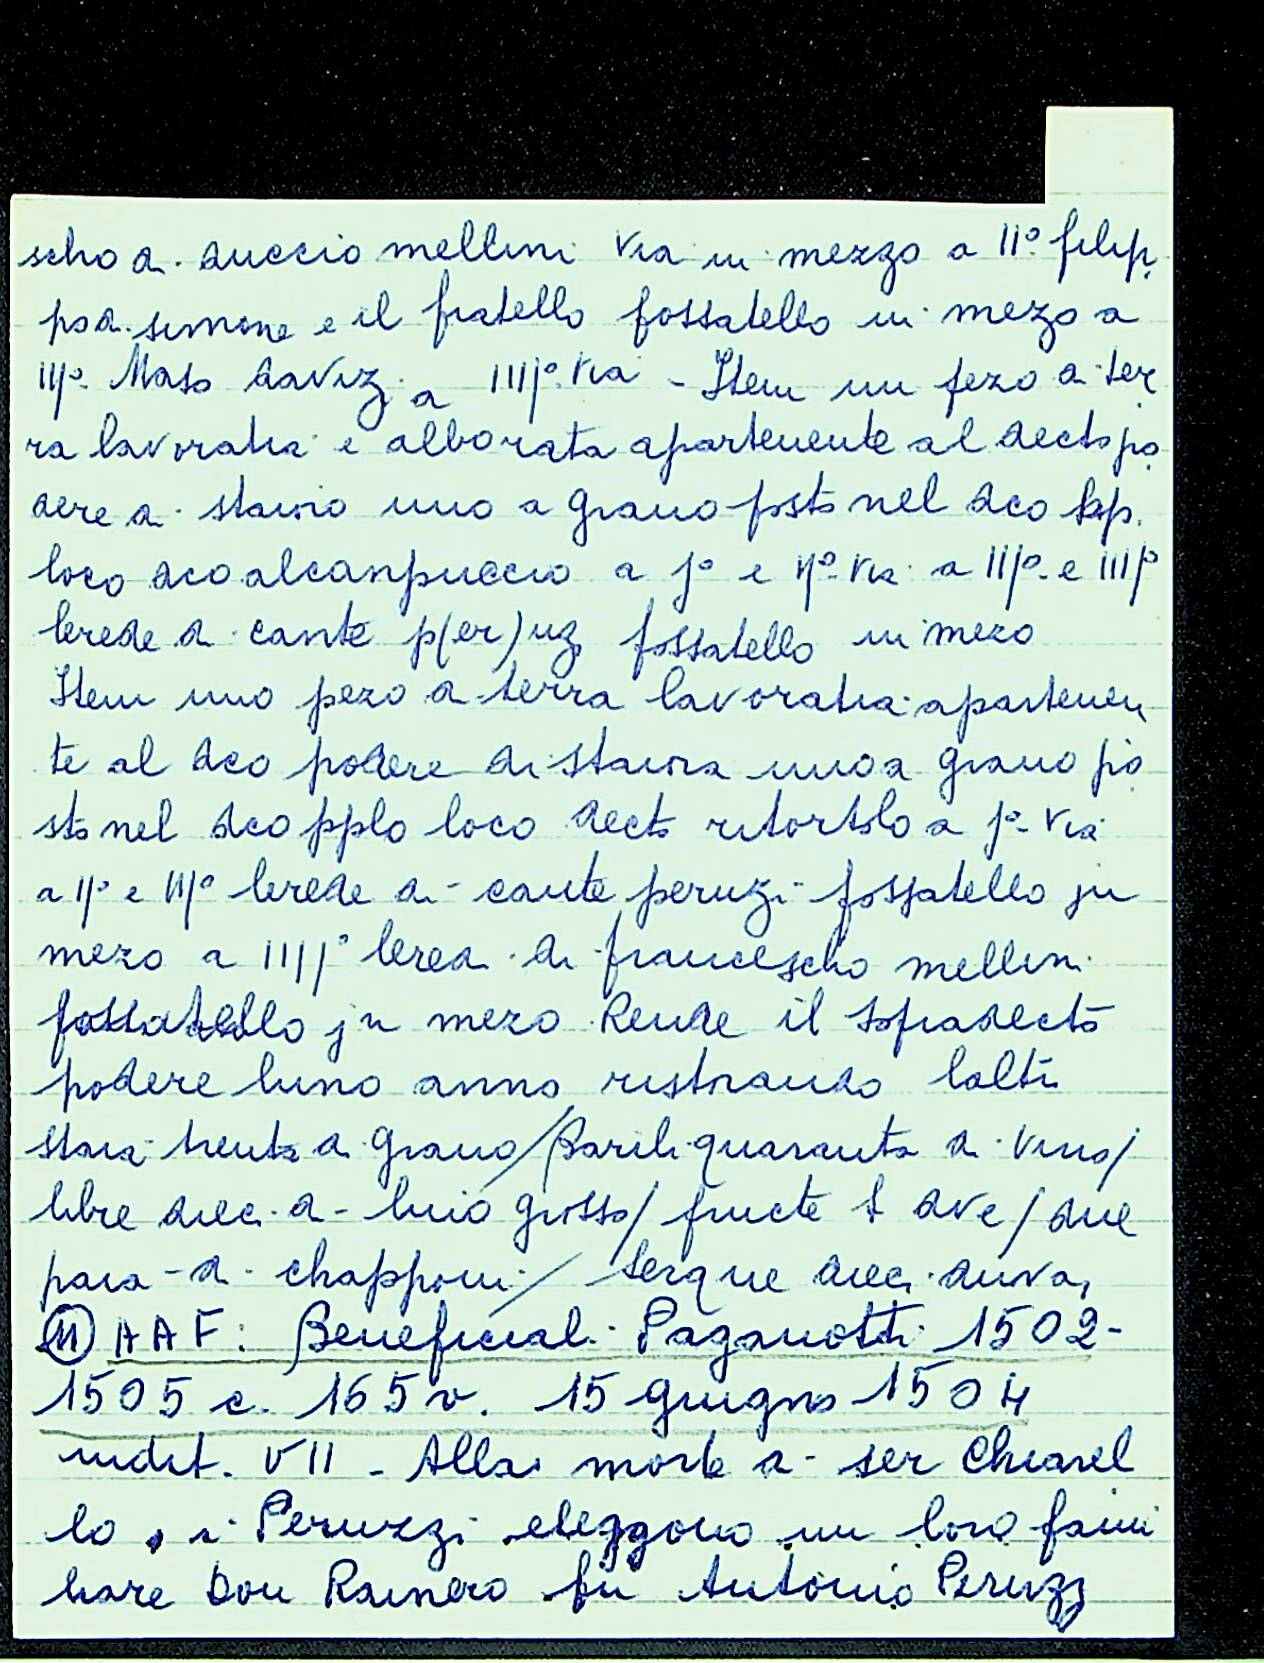 scho di duccio mellini via in mezzo a II° filip
po di simone e il fratello fossatello in mezo a
III° Maso daviz. a IIII° via - Item un pezo di ter
ra lavoratia e alborata apartenente al decto po
dere di staioro uno a grano posto nel dco pop.
loco dco alcanpuccio a j° e II° via a III° e IIII°
lerede di cante p(er)uz. fossatello in mezo
Item uno pezo di terra lavoratia apartenen
te al dco podere di staiora uno a grano po
sto nel dco pplo loco decto ritortolo a j° via
a II° e III° lerede di cante peruzi fossatello jn
mezo a IIII° lered. di francescho mellini
fossatello jn mezo Rende il sopradecto
podere luno anno ristorando laltro
staia trenta di grano/barili quaranta di vino/
libre dieci di lino grosso/ fructe s dve/due
paia di chapponi/ serque dieci duova,
(11) AAF: Beneficial. Paganotti 1502-
1505 c. 165v. 15 giugno 1504
indit. VII - Alla morte di ser Chiarel
lo, i Peruzzi eleggono un loro fami
liare Don Rainero fu Antonio Peruzz